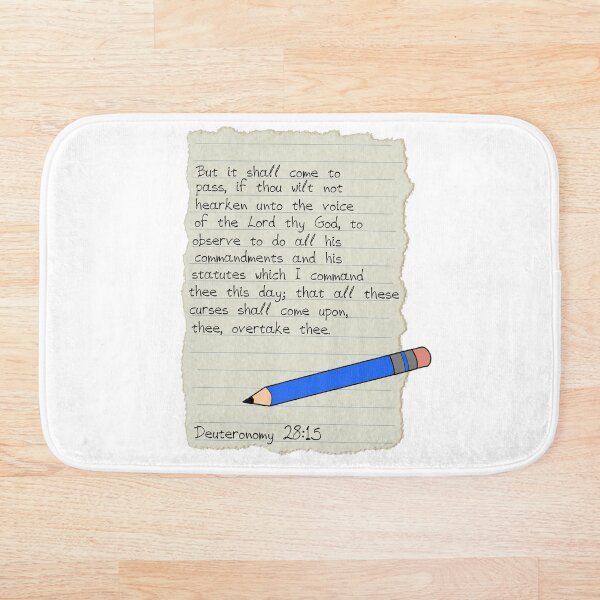 But it shall come to
pass, if thou wilt not
hearken unto the voice
of the Lord thy God, to
observe to do all his
commandments and his
statutes which I command
thee this day; that all these
curses shall come upon,
thee, overtake thee.
Deuteronomy 28:15